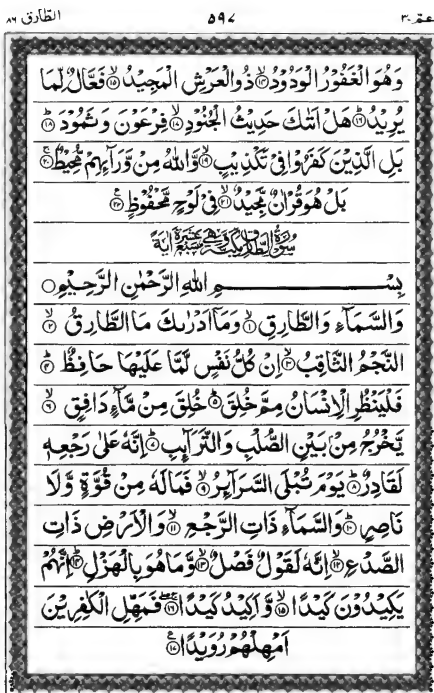 عمّ ٣٠ ٥٩٧ الطّارق ٨٦
وَهُوَ الْغَفُوْرُ الْوَدُوْدُ ۙ۝١٤ ذُو الْعَرْشِ الْمَجِيْدُ ۙ۝١٥ فَعَّالٌ لِّمَا
يُرِيْدُ ؕ۝١٦ هَلْ اَتٰىكَ حَدِيْثُ الْجُنُوْدِ ۙ۝١٧ فِرْعَوْنَ وَثَمُوْدَ ؕ۝١٨
بَلِ الَّذِيْنَ كَفَرُوْا فِيْ تَكْذِيْبٍ ۙ۝١٩ وَّاللّٰهُ مِنْ وَّرَآىِٕهِمْ مُّحِيْطٌ ۚ۝٢٠
بَلْ هُوَ قُرْاٰنٌ مَّجِيْدٌ ۙ۝٢١ فِيْ لَوْحٍ مَّحْفُوْظٍ ۠۝٢٢
سُوْرَةُ الطَّارِقِ مَكِّيَّةٌ وَّهِيَ سَبْعَ عَشْرَةَ اٰيَةً
بِسْمِ اللّٰهِ الرَّحْمٰنِ الرَّحِيْمِ ۝
وَالسَّمَآءِ وَالطَّارِقِ ۙ۝١ وَمَاۤ اَدْرٰىكَ مَا الطَّارِقُ ۙ۝٢
النَّجْمُ الثَّاقِبُ ۙ۝٣ اِنْ كُلُّ نَفْسٍ لَّمَّا عَلَيْهَا حَافِظٌ ؕ۝٤
فَلْيَنْظُرِ الْاِنْسَانُ مِمَّ خُلِقَ ؕ۝٥ خُلِقَ مِنْ مَّآءٍ دَافِقٍ ۙ۝٦
يَّخْرُجُ مِنْۢ بَيْنِ الصُّلْبِ وَالتَّرَآىِٕبِ ؕ۝٧ اِنَّهٗ عَلٰى رَجْعِهٖ
لَقَادِرٌ ؕ۝٨ يَوْمَ تُبْلَى السَّرَآىِٕرُ ۙ۝٩ فَمَا لَهٗ مِنْ قُوَّةٍ وَّلَا
نَاصِرٍ ؕ۝١٠ وَالسَّمَآءِ ذَاتِ الرَّجْعِ ۙ۝١١ وَالْاَرْضِ ذَاتِ
الصَّدْعِ ۙ۝١٢ اِنَّهٗ لَقَوْلٌ فَصْلٌ ۙ۝١٣ وَّمَا هُوَ بِالْهَزْلِ ؕ۝١٤ اِنَّهُمْ
يَكِيْدُوْنَ كَيْدًا ۙ۝١٥ وَّاَكِيْدُ كَيْدًا ۚ۝١٦ فَمَهِّلِ الْكٰفِرِيْنَ
اَمْهِلْهُمْ رُوَيْدًا ۠۝١٧